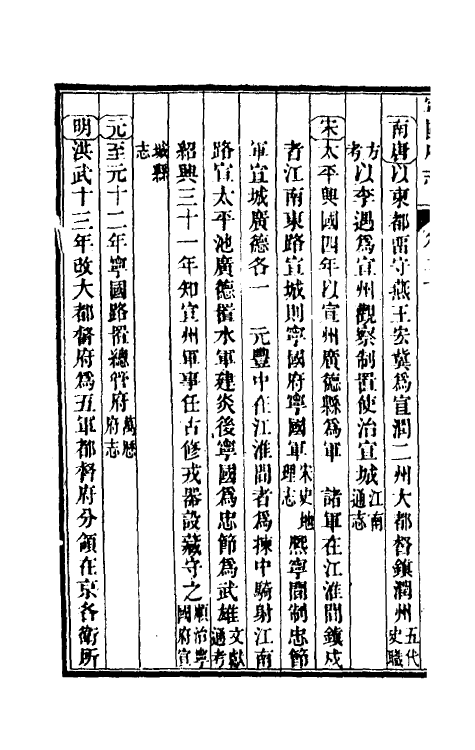 南唐以東都畱守燕王宏冀爲宣潤二州大都督鎮潤州五代史職
方考以李遇爲宣州觀察制置使治宣城江南通志
宋太平興國四年以宣州廣德縣爲軍 諸軍在江淮間鎮戍
者江南東路宣城則寧國府寧國軍宋史地理志 熙寧間制忠節
軍宣城廣德各一 元豐中在江淮間者爲揀中騎射江南
路宣太平池廣德置水軍建炎後寧國爲忠節爲武雄文獻通考
紹興三十一年知宣州軍事任古修戎器設藏守之順治寧國府宣
城縣志
元至元十二年寧國路置總管府萬曆府志
明洪武十三年改大都督府爲五軍都督府分領在京各衛所